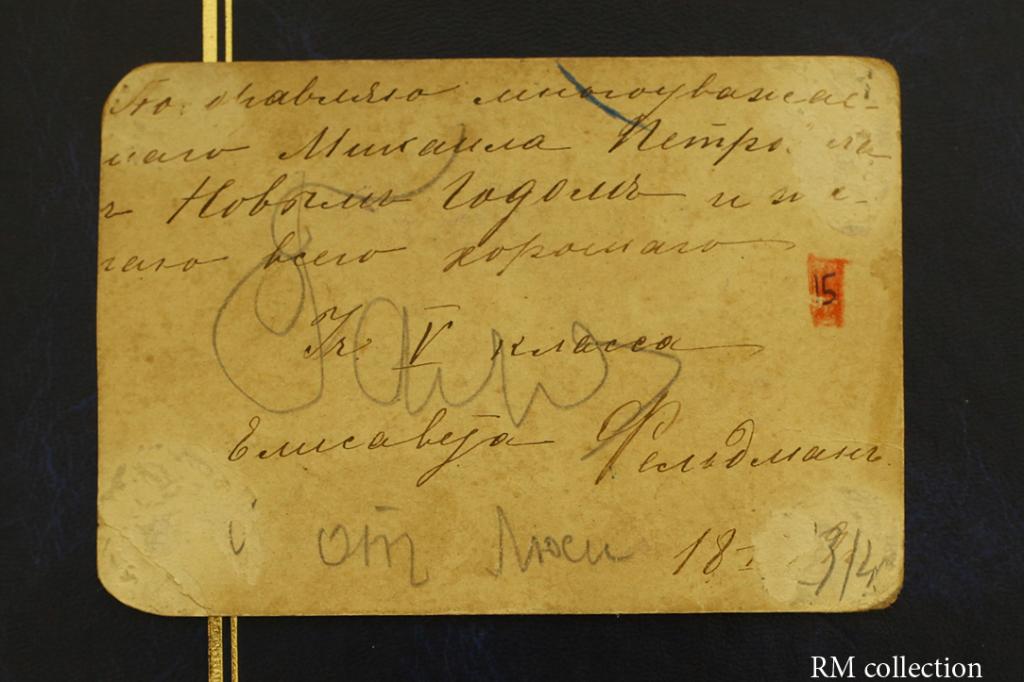 По дравляю многоуважае-
маго Михаила Петро ча
ъ Новымъ Годомъ и же-
лаю всего хорошаго
15
Уч. V класса
Елисавета Фельдманъ.
отъ Люси 18
RM collection